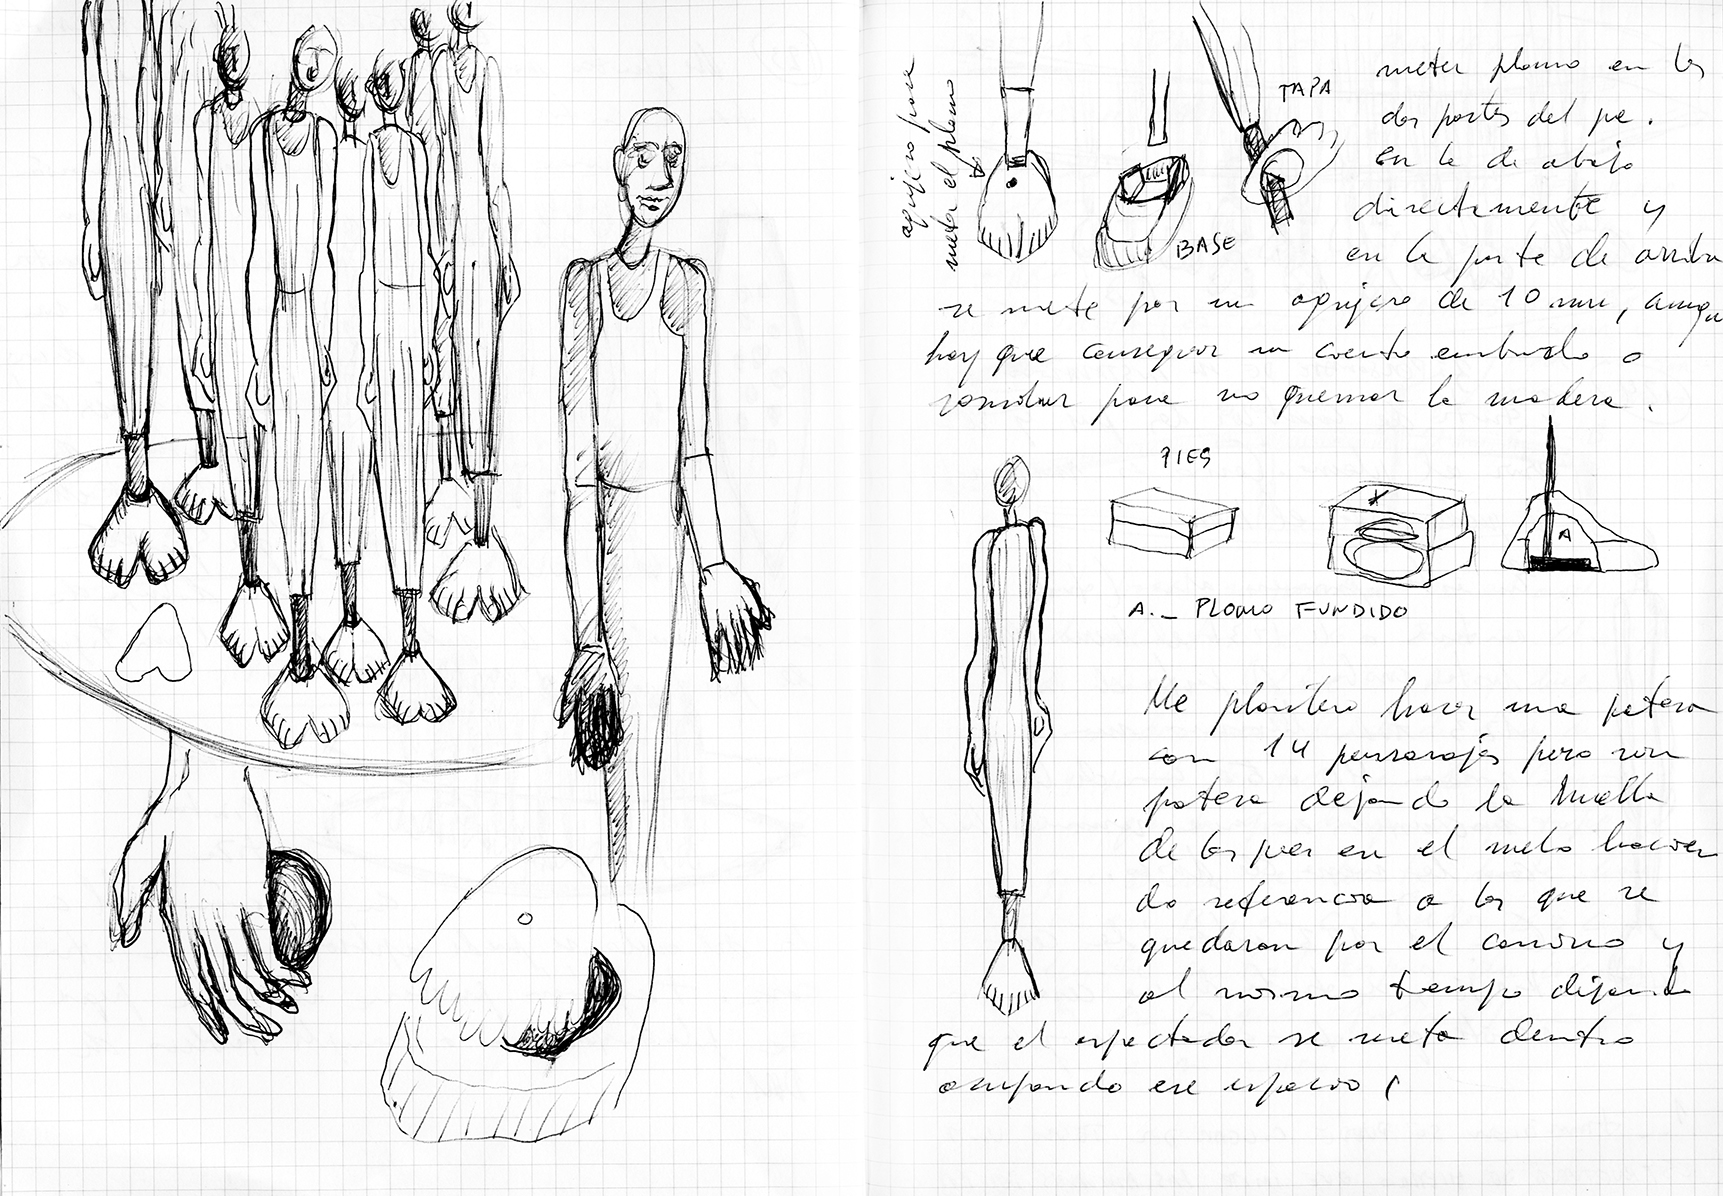 agujero para
meter el plomo
TAPA
BASE
meter plomo en las
dos partes del pie.
en la de abajo
directamente y
en la parte de arriba
se mete por un agujero de 10 mm, aunque
hay que conseguir un cuento embudo o
similar para no quemar la madera.
PIES
X
A
A._ PLOMO FUNDIDO
Me planteo hacer una patera
con 14 personajes pero sin
patera dejando la huella
de los pies en el suelo hacien
do referencia a los que se
quedaron por el camino y
al mismo tiempo dejando
que el espectador se meta dentro
ocupando ese espacio